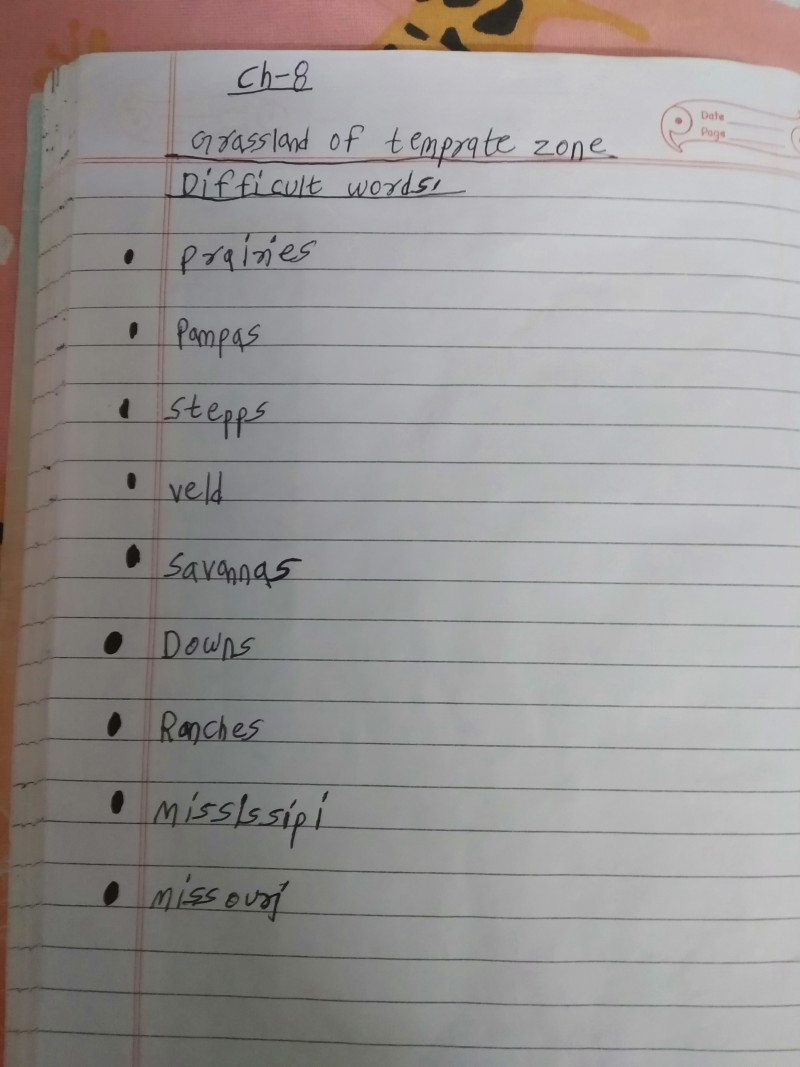 Ch-8
Date
Page
Grassland of temprate zone
Difficult words.
• Prairies
• Pampas
• Stepps
• veld
• Savannas
• Downs
• Ranches
• Mississipi
• Missouri